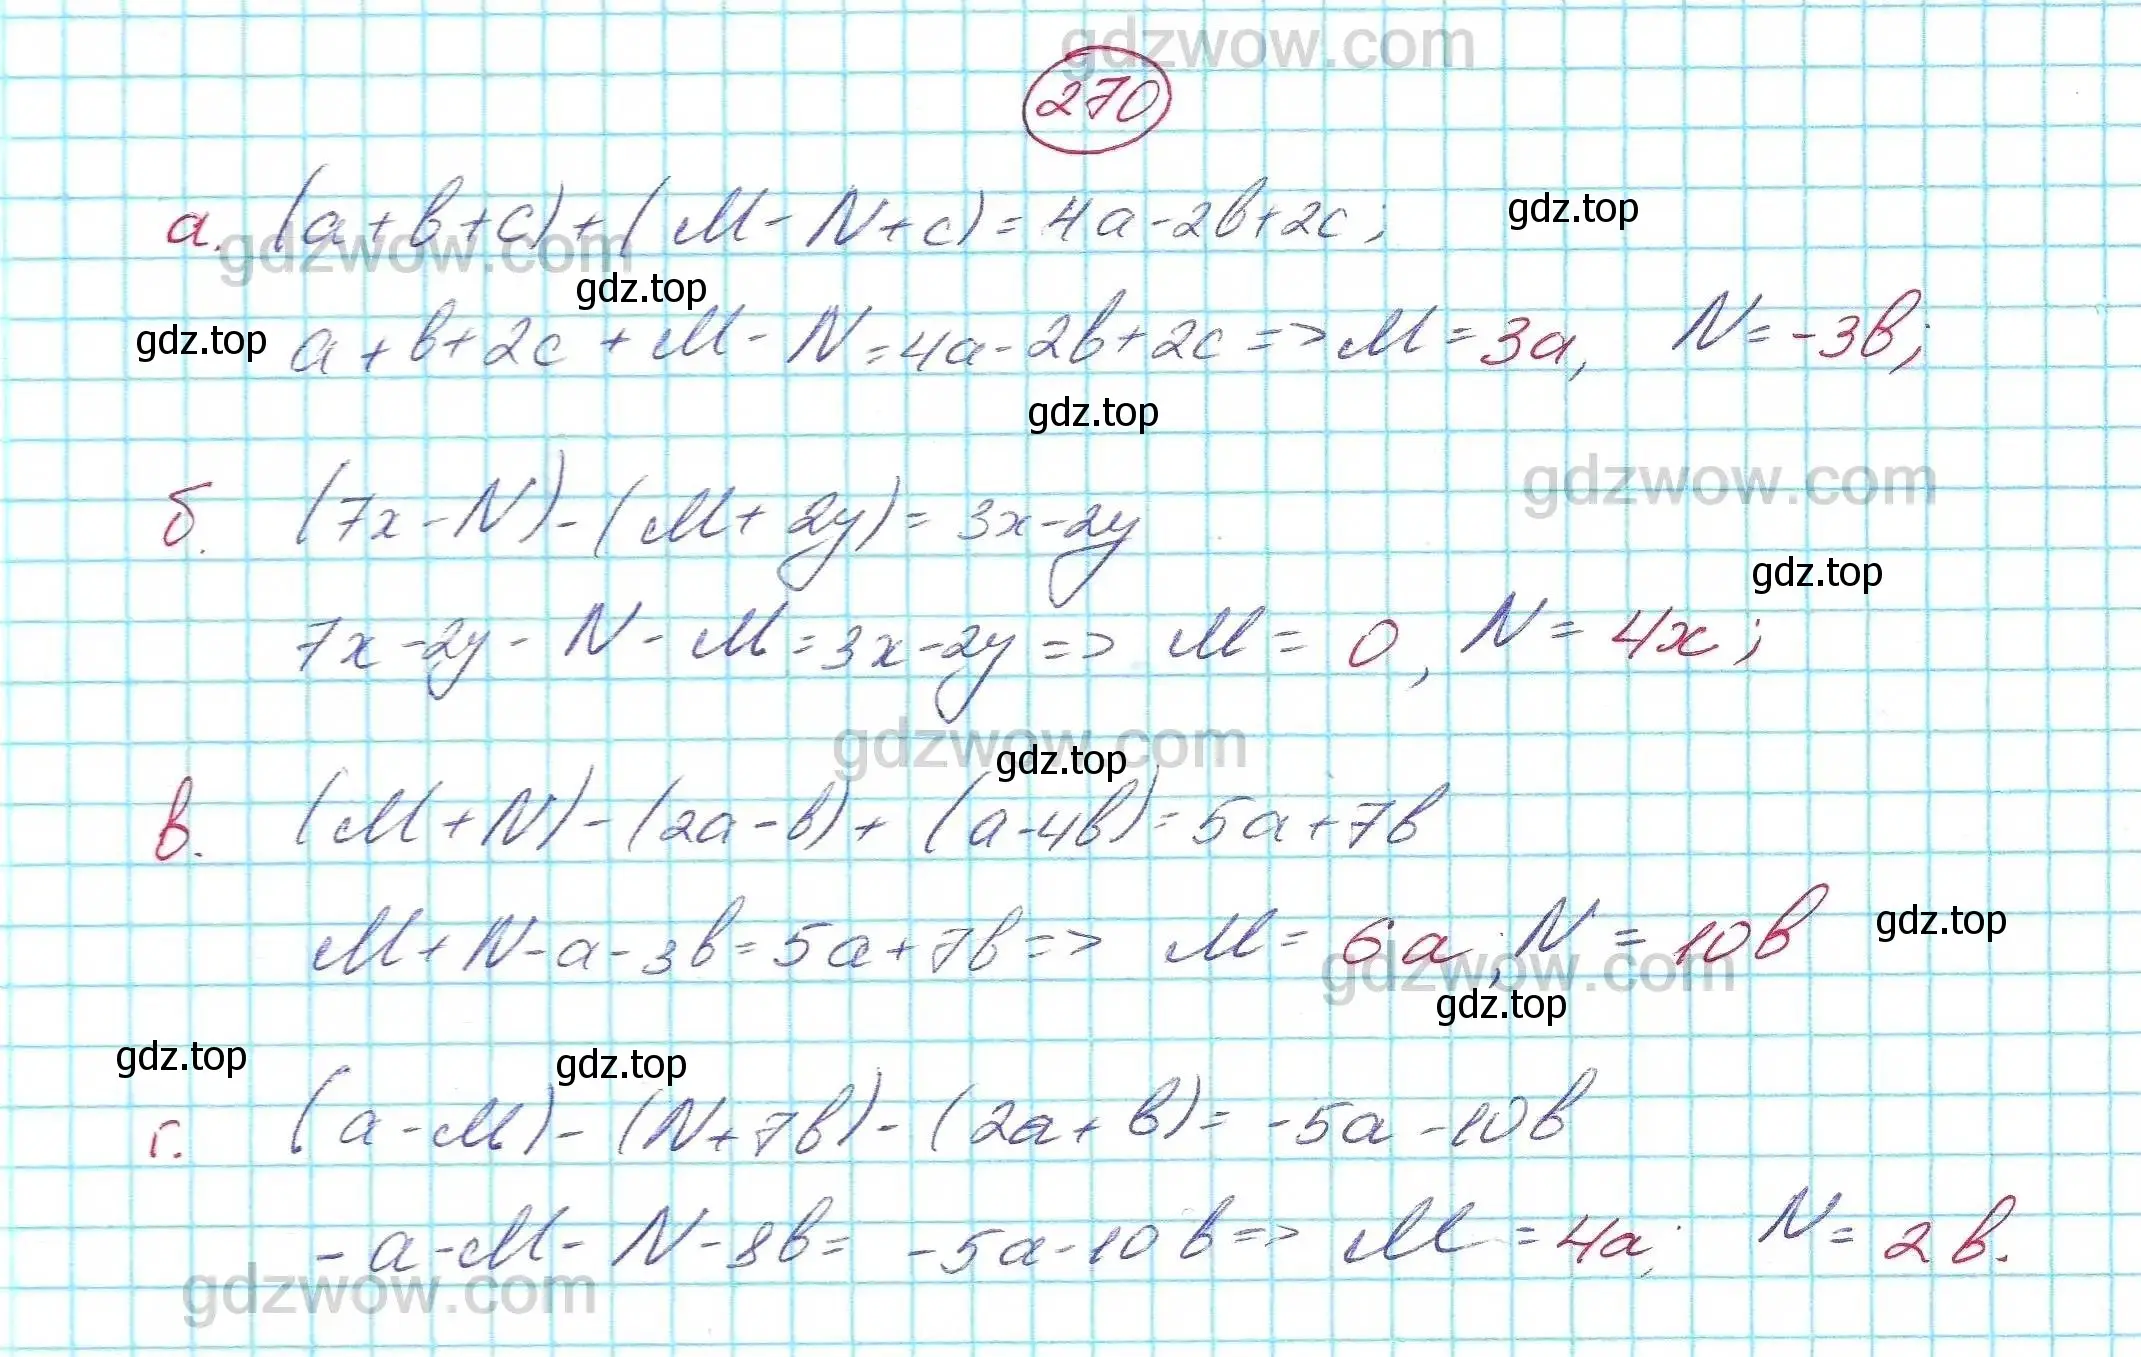 gdzwow.com
270
а. (a+b+c)+(M-N+c)=4a-2b+2c;
gdz.top
gdzwow.com
gdz.top
gdz.top
a+b+2c+M-N=4a-2b+2c=>M=3a, N=-3b;
gdz.top
gdzwow.com
б. (7x-N)-(M+2y)=3x-2y
gdz.top
7x-2y-N-M=3x-2y=> M=0, N=4x;
gdzwow.com
gdz.top
в. (M+N)-(2a-b)+(a-4b)=5a+7b
M+N-a-3b=5a+7b=> M=6a; N=10b
gdz.top
gdzwow.com
gdz.top
gdz.top
gdz.top
г. (a-M)-(N+7b)-(2a+b)=-5a-10b
-a-M-N-8b=-5a-10b=> M=4a; N=2b.
gdzwow.com